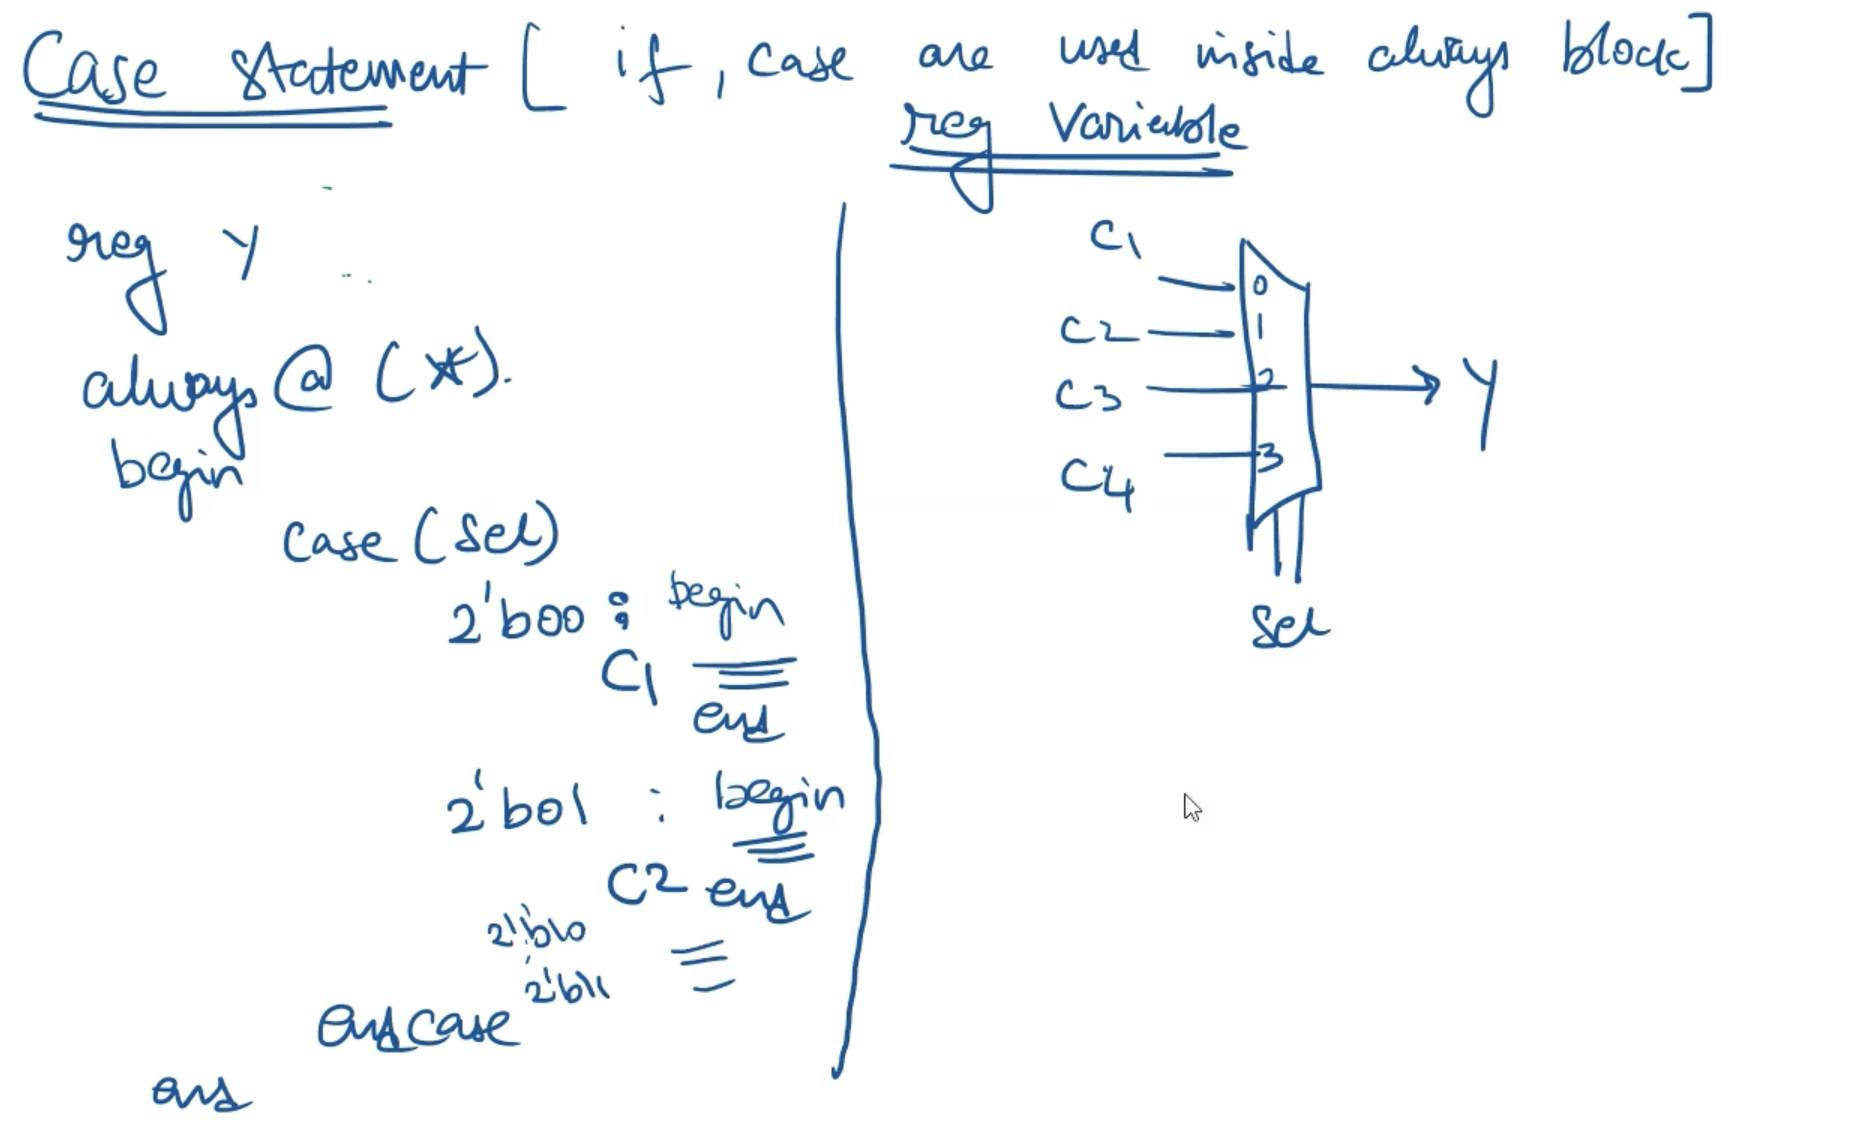 Case Statement [ if, case are used inside always block]
reg Variable
reg Y
always @ (*).
begin
case (sel)
2'b00 : begin
C1
end
2'b01 : begin
C2 end
2'b10
2'b11
endcase
end
C1
0
C2
1
C3
2
Y
C4
3
sel